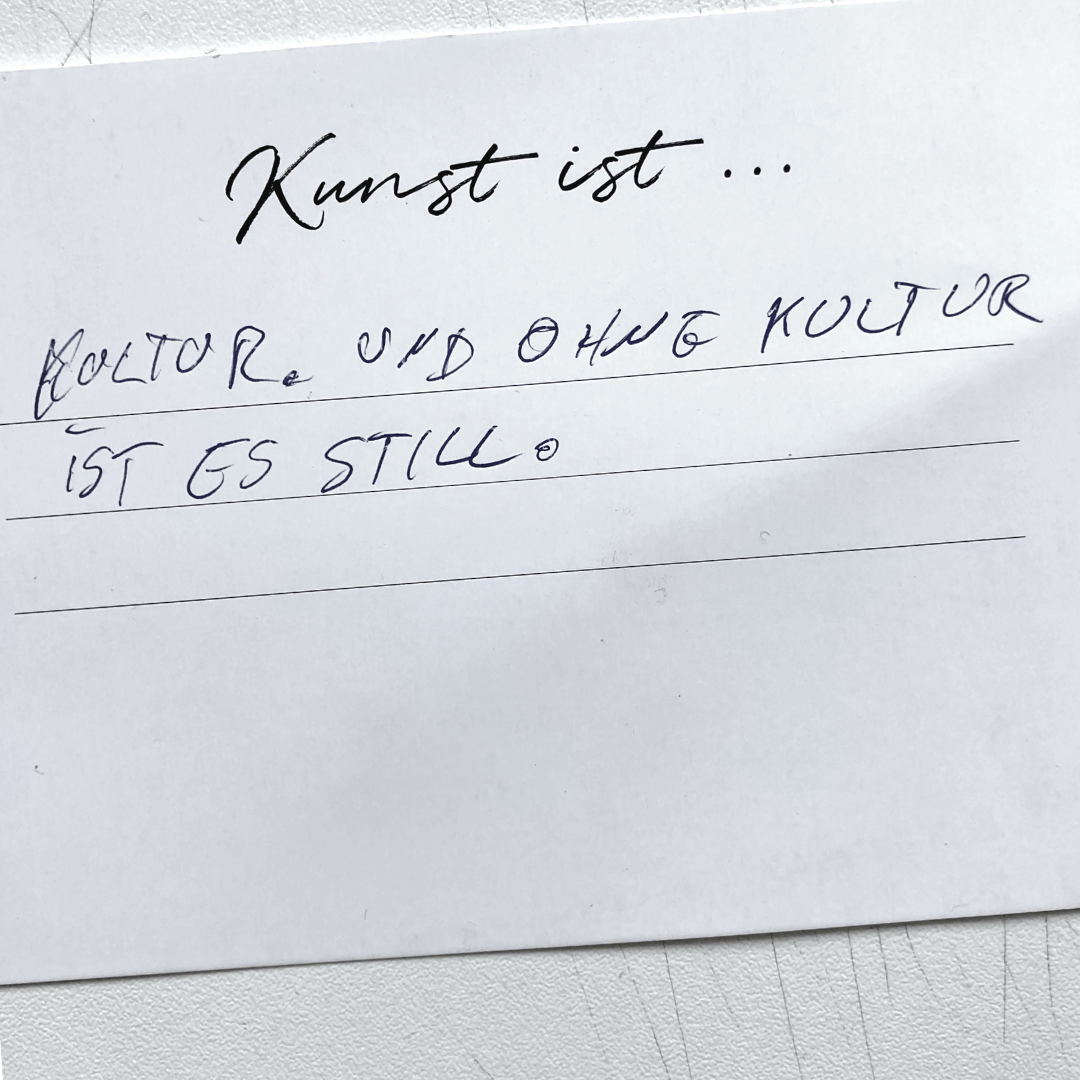 Kunst ist ...
KULTUR. UND OHNE KULTUR
IST ES STILL.